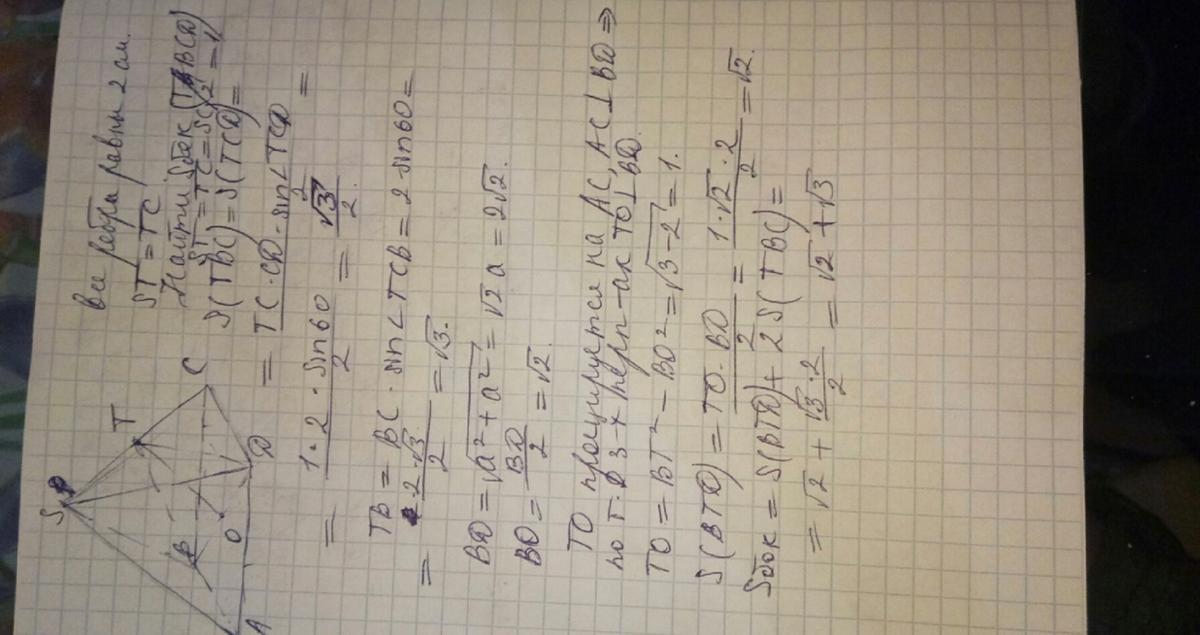 все ребра равны 2 см.
ST = TC
Найти Sбок (TBCD)
ST = TC = SC/2 = 1
S(TBC) = S(TCD) =
= TC · CD · sin∠TCD / 2 =
= 1 · 2 · sin60 / 2 = √3 / 2.
TB = BC · sin∠TCB = 2 sin60 =
= 2 · √3 / 2 = √3.
BD = √a² + a² = √2 a = 2√2.
BO = BD / 2 = √2.
TO проицируется на AC, AC ⊥ BD ⇒
по т. о 3-х перп-ах TO ⊥ BD.
TO = BT² − BO² = √3−2 = 1.
S(BTD) = TO · BD / 2 = 1 · √2 · 2 / 2 = √2.
Sбок = S(BTD) + 2 S(TBC) =
= √2 + √3 · 2 / 2 = √2 + √3
S
T
C
B
O
D
A